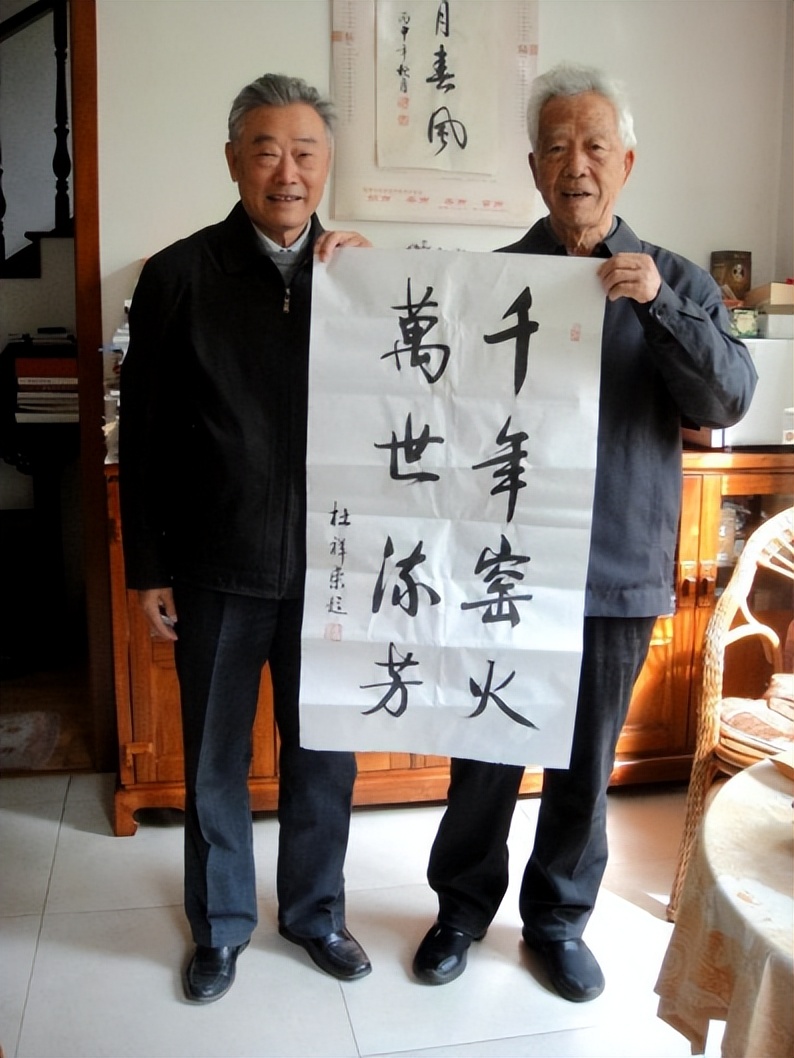 千年窑火
萬世流芳
杜祥荣题
月春風
丙申年秋月